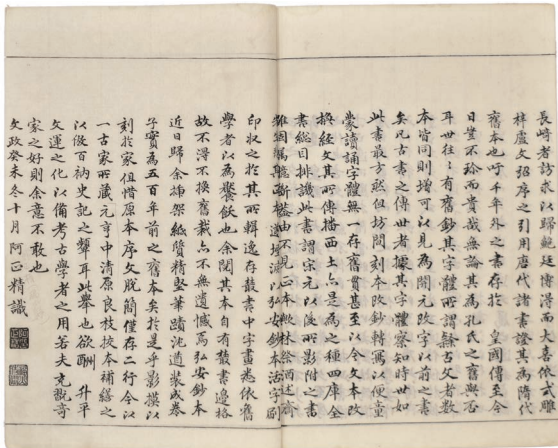 長崎者訪求以歸鮑廷博得而大喜依式雕
梓盧文弨序之引用唐代諸書證其為隋代
舊本也吁千年外之書存於 皇國傳至今
日豈不珍而貴哉無論其為孔氏之舊與否
耳世往〻有舊鈔其字體所謂隸古文者數
本皆同則增可以見為開元改字以前之書
矣凡古書之傳世者據其字體察知時世如
此書最方然但坊間刻本改鈔轉寫以便童
蒙讀誦字體無一存舊貫甚至以今文本改
於經文其傳播西土亦是為之種四庫全
書總目排譏此書謂宋元以後所影附之書
雖固屬臆斷由不見正本林述齋以弘安鈔本活字刷
印収之於其所輯逸存叢書中字畫悉依舊
學者以為饜飫也余閱其本自有叢書邊格
故不得不換舊裁亦不無遺憾焉弘安鈔本
近日歸余插架紙質精堅筆蹟遒装成卷
子實為五百年前之舊本矣於是乎影摸以
刻於家但惜原本序文脱簡僅存二行今以
一古家所藏元亨中清原良枝挍本補繕之
以傚百衲史記之顰耳此擧也欲酬 升平
文運之化以備考古學者之用若夫充翫奇
家之好則余意不敢也
文政癸未冬十月 阿正精識